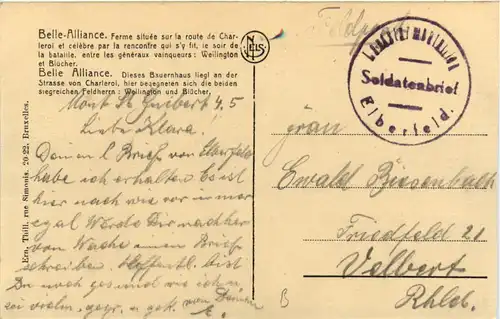 Belle-Alliance. Ferme située sur la route de Char-
leroi et célèbre par la rencontre qui s'y fit, le soir de
la bataille, entre les généraux vainqueurs: Wellington
et Blücher.
Belle Alliance. Dieses Bauernhaus liegt an der
Strasse von Charleroi, hier begegneten sich die beiden
siegreichen Feldherrn: Wellington und Blücher.
NELS
Feldpost
Soldatenbrief
Elberfeld.
Mont St Guibert 4.5
Liebe Klara!
Deinen l. Brief von Elberfeld
habe ich erhalten Es ist
hier nach wie vor immer
egal Werde Dir nachher
von Wache einen Brief
schreiben. Hoffentl. bist
Du noch gesund wie ich
sei vielm. gegr. u. gek. von Deinem
E.
Ern. Thill, rue Simonis, 20-22, Bruxelles.
Frau
Ewald Biesenbach
Friedfeld 21
Velbert
Rhld.
B